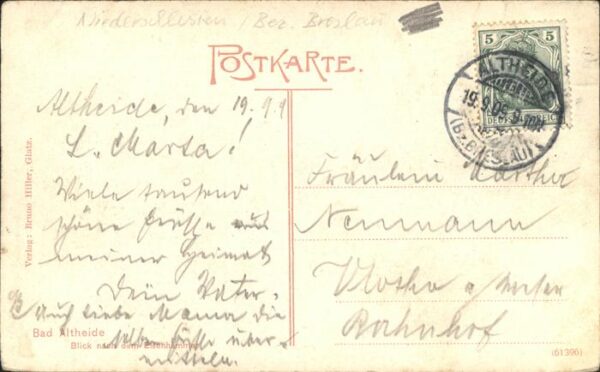 Niederschlesien / Bez. Breslau
POSTKARTE.
5 5
ALTHEIDE
19.9.
(BZ. BRESLAU)
Altheide, den 19.9.
L. Marta!
Viele tausend
schöne Grüße aus
meiner Heimat
Dein Vater.
Auch liebe Mama die
selben Grüße über-
mitteln.
Fräulein Marthe
Neumann
Vlotho a/Weser
Bahnhof
Verlag: Bruno Hiller, Glatz.
Bad Altheide
Blick nach dem Eisenhammer
(61390)